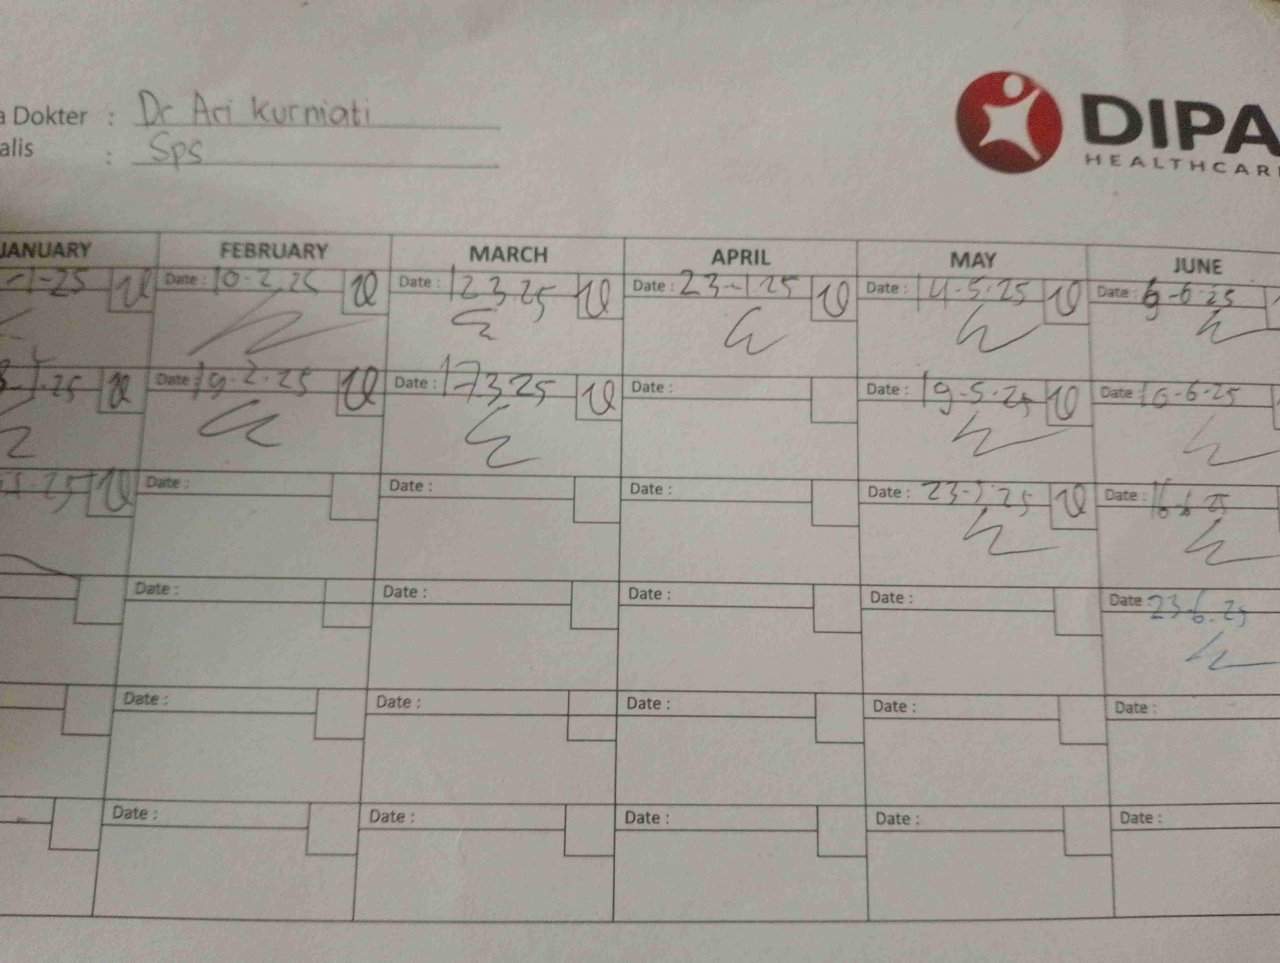 a Dokter : Dr Ari Kurniati
alis : Sps
DIPA
HEALTHCAR
JANUARY FEBRUARY MARCH APRIL MAY JUNE
-1-25 Date : 10-2.25 Date : 12 3 25 Date : 23-1.25 Date : 14-5.25 Date : 9-6-25
.25 Date : 19-2-25 Date : 17 3 25 Date : Date : 19-5-25 Date : 10-6-25
.25 Date : Date : Date : Date : 23-5.25 Date : 16 6 25
Date : Date : Date : Date : Date : 23-6.25
Date : Date : Date : Date : Date :
Date : Date : Date : Date : Date :